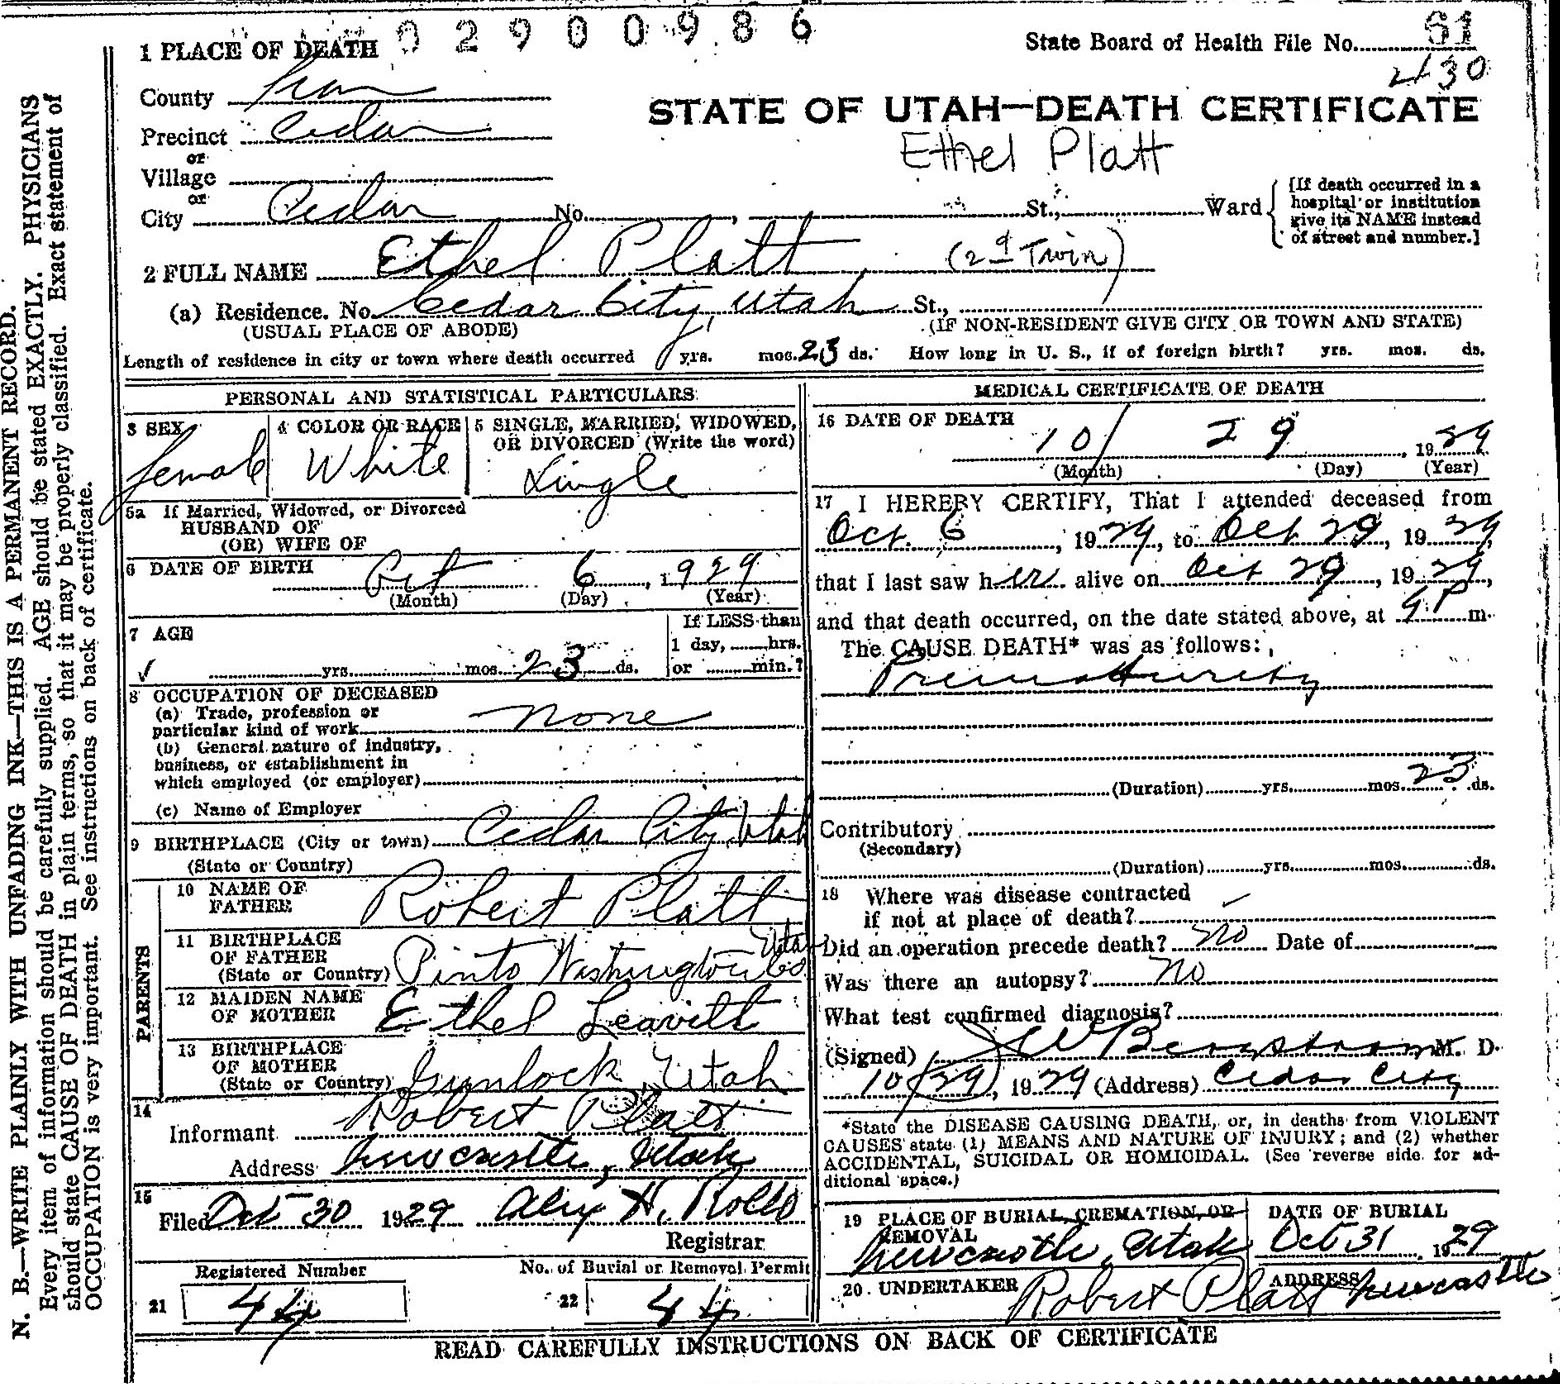 02900986
1 PLACE OF DEATH
State Board of Health File No. 61
430
County Iron
STATE OF UTAH—DEATH CERTIFICATE
Precinct Cedar
Ethel Platt
or
Village
or
City Cedar No. , St., Ward
[If death occurred in a
hospital or institution
give its NAME instead
of street and number.]
2 FULL NAME Ethel Platt (2d Twin)
(a) Residence. No. Cedar City, Utah St.,
(USUAL PLACE OF ABODE) (IF NON-RESIDENT GIVE CITY OR TOWN AND STATE)
Length of residence in city or town where death occurred yrs. mos. 23 ds. How long in U. S., if of foreign birth? yrs. mos. ds.
PERSONAL AND STATISTICAL PARTICULARS
3 SEX
female
4 COLOR OR RACE
White
5 SINGLE, MARRIED, WIDOWED,
OR DIVORCED (Write the word)
Single
5a If Married, Widowed, or Divorced
HUSBAND OF
(OR) WIFE OF
6 DATE OF BIRTH Oct 6, 1929
(Month) (Day) (Year)
7 AGE
yrs. mos. 23 ds.
If LESS than
1 day, hrs.
or min.?
8 OCCUPATION OF DECEASED
(a) Trade, profession or
particular kind of work none
(b) General nature of industry,
business, or establishment in
which employed (or employer)
(c) Name of Employer
9 BIRTHPLACE (City or town) Cedar City, Utah
(State or Country)
PARENTS
10 NAME OF
FATHER Robert Platt
11 BIRTHPLACE
OF FATHER
(State or Country) Pinto Washington Co Utah
12 MAIDEN NAME
OF MOTHER Ethel Leavitt
13 BIRTHPLACE
OF MOTHER
(State or Country) Gunlock, Utah
14
Informant Robert Platt
Address Newcastle, Utah
15
Filed Oct 30 1929 Alex H. Rollo
Registrar
Registered Number
21 44
No. of Burial or Removal Permit
22 44
MEDICAL CERTIFICATE OF DEATH
16 DATE OF DEATH
10/ 29, 1929
(Month) (Day) (Year)
17 I HEREBY CERTIFY, That I attended deceased from
Oct. 6, 1929, to Oct 29, 1929,
that I last saw her alive on Oct 29, 1929,
and that death occurred, on the date stated above, at 9 P m.
The CAUSE DEATH* was as follows:
Prematurity
(Duration) yrs. mos. 23 ds.
Contributory
(Secondary)
(Duration) yrs. mos. ds.
18 Where was disease contracted
if not at place of death?
Did an operation precede death? no Date of
Was there an autopsy? no
What test confirmed diagnosis?
(Signed) Bergstrom M. D.
10/29, 1929 (Address) Cedar City
*State the DISEASE CAUSING DEATH, or, in deaths from VIOLENT
CAUSES state (1) MEANS AND NATURE OF INJURY; and (2) whether
ACCIDENTAL, SUICIDAL OR HOMICIDAL. (See reverse side for ad-
ditional space.)
19 PLACE OF BURIAL, CREMATION, OR
REMOVAL
Newcastle, Utah
DATE OF BURIAL
Oct 31, 1929
20 UNDERTAKER Robert Platt
ADDRESS Newcastle
READ CAREFULLY INSTRUCTIONS ON BACK OF CERTIFICATE
N. B.—WRITE PLAINLY WITH UNFADING INK—THIS IS A PERMANENT RECORD.
Every item of information should be carefully supplied. AGE should be stated EXACTLY. PHYSICIANS
should state CAUSE OF DEATH in plain terms, so that it may be properly classified. Exact statement of
OCCUPATION is very important. See instructions on back of certificate.